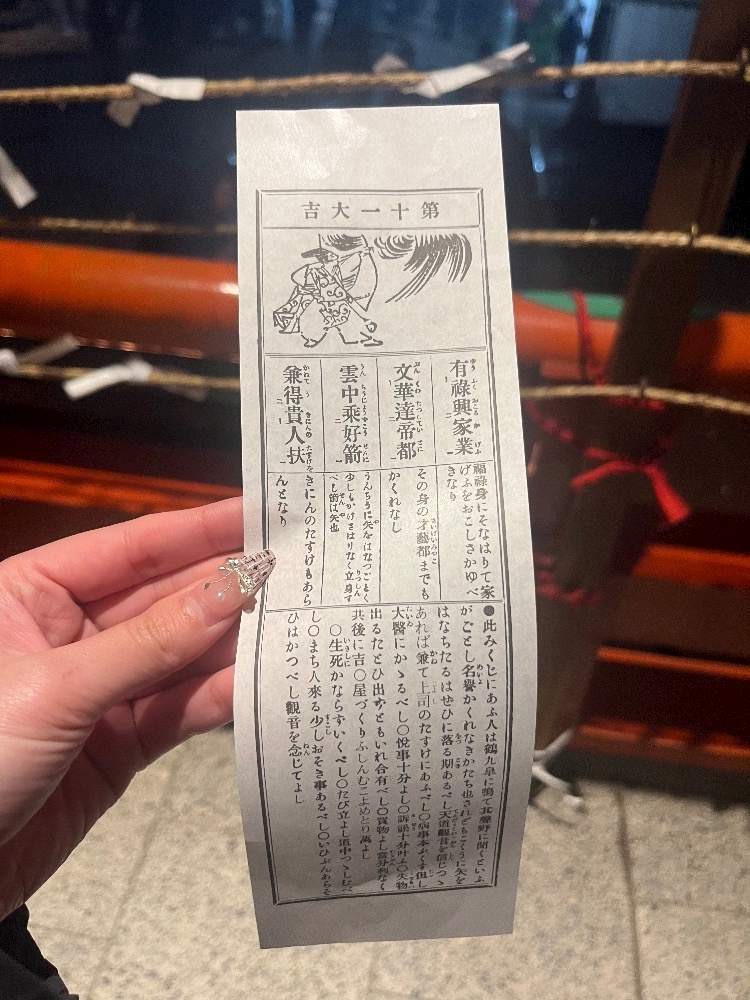 第十一大吉
有祿興家業
福祿身にそなはりて家
げふをおこしさかゆべ
きなり
文華達帝都
その身の才藝都までも
かくれなし
雲中乘好箭
うんちうに矢をはなつごとく
少しもかけさはりなく立身す
べし箭は矢也
兼得貴人扶
きにんのたすけもあら
んとなり
●此みくじにあふ人は鶴九皐に鳴て其聲野に聞くといふ
がごとし名譽かくれなきかたち也されどもこくうに矢を
はなちたるはせひに落る期あるべし天道觀音を信じつゝ
あれば兼て上司のたすけにあふべし〇病事本ぷくす但し
大醫にかゝるべし〇悦事十分よし〇訴訟十分叶ふ〇失物
出るたとひ出ずともいれ合有べし〇賣物よし當分利なく
共後に吉〇屋づくりふしんむこよめとり萬よし
〇生死かならずいくべし〇たび立よし道中つゝしむべ
し〇まち人來る少しおそき事あるべし〇いひぶんあらそ
ひはかつべし觀音を念じてよし